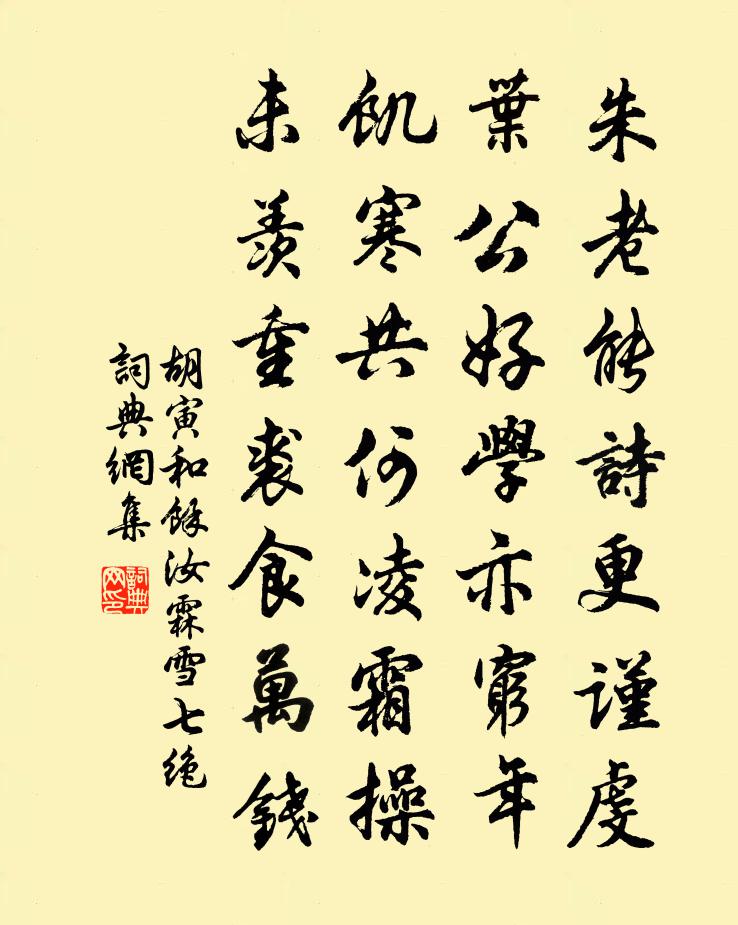 朱老能詩更謹虔
葉公好學亦窮年
飢寒共仰凌霜操
未羨重裘食萬錢
胡寅和餘汝霖雪七絶
詞典網集
詞典
网印